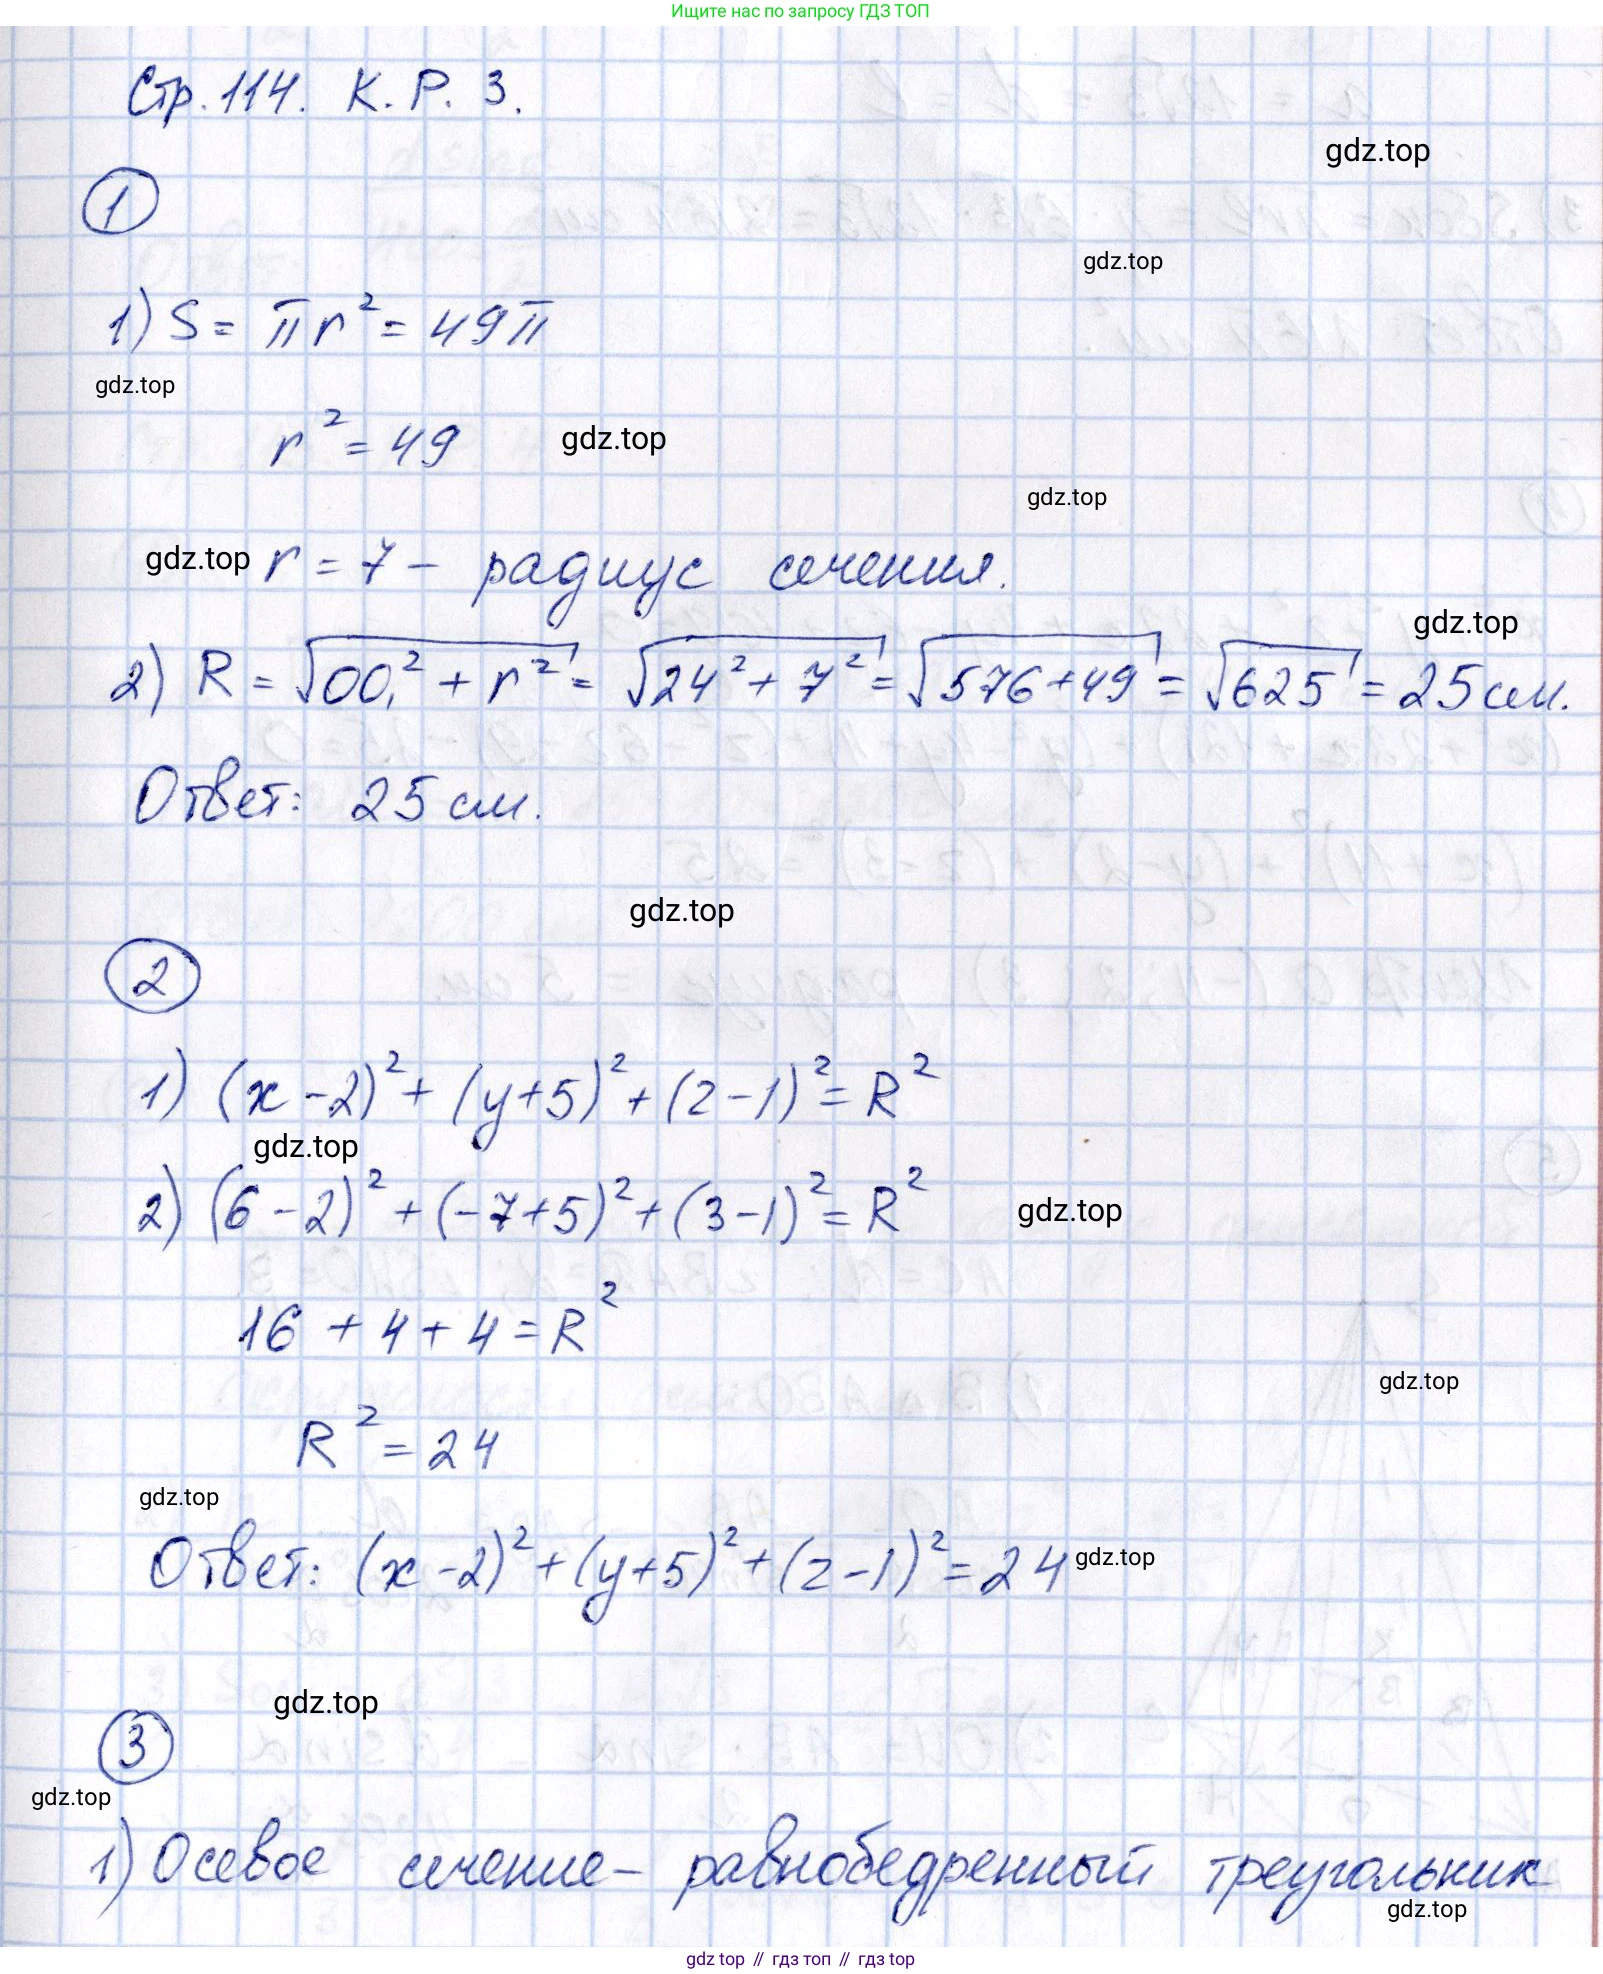 Ищите нас по запросу ГДЗ ТОП
Стр. 114. К. Р. 3.
gdz.top
1
gdz.top
1) S = πr² = 49π
gdz.top
r² = 49 gdz.top
gdz.top
gdz.top r = 7 – радиус сечения.
gdz.top
2) R = √(OO₁² + r²) = √(24² + 7²) = √(576+49) = √625 = 25 см.
Ответ: 25 см.
gdz.top
2
1) (x - 2)² + (y + 5)² + (z - 1)² = R²
gdz.top
2) (6 - 2)² + (-7+5)² + (3-1)² = R² gdz.top
16 + 4 + 4 = R²
gdz.top
R² = 24
gdz.top
Ответ: (x - 2)² + (y+5)² + (z-1)² = 24 gdz.top
gdz.top
3
gdz.top
1) Осевое сечение – равнобедренный треугольник
gdz.top
gdz top // гдз топ // gdz top